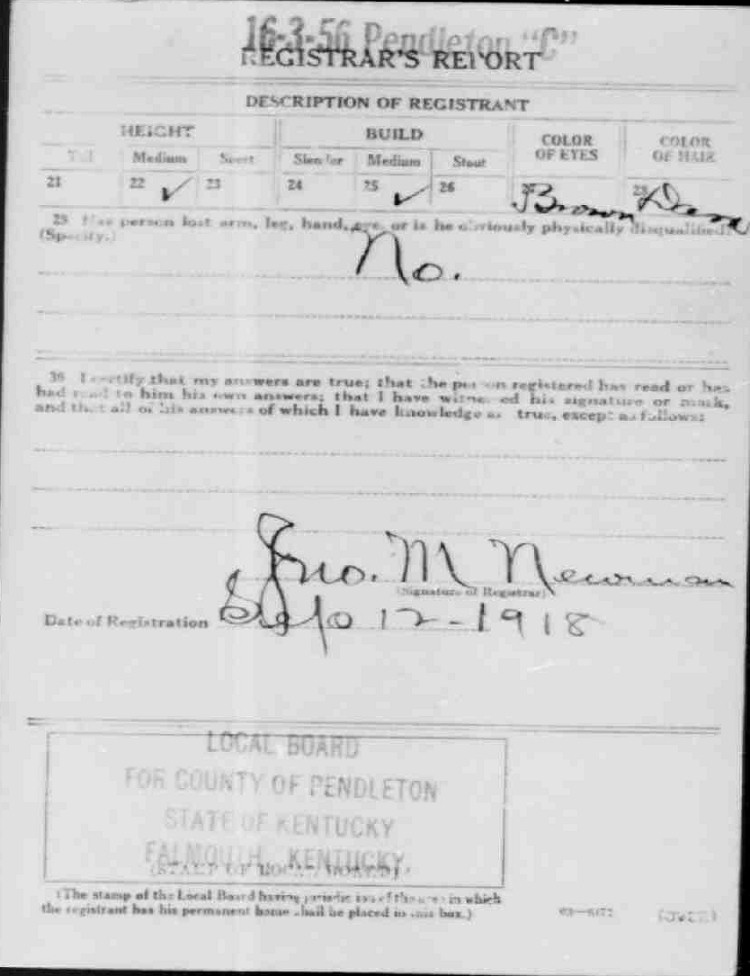 16-3-56 Pendleton "C"
REGISTRAR'S REPORT
DESCRIPTION OF REGISTRANT
HEIGHT BUILD COLOR OF EYES COLOR OF HAIR
Tall Medium Short Slender Medium Stout
21 22 ✓ 23 24 25 ✓ 26 27 Brown 28
29 Has person lost arm, leg, hand, eye, or is he obviously physically disqualified?
(Specify.) No.
30 I certify that my answers are true; that the person registered has read or has
had read to him his own answers; that I have witnessed his signature or mark,
and that all of his answers of which I have knowledge are true, except as follows:
Jno. M Newman
(Signature of Registrar)
Date of Registration Sept 12-1918
LOCAL BOARD
FOR COUNTY OF PENDLETON
STATE OF KENTUCKY
FALMOUTH, KENTUCKY.
(STAMP OF LOCAL BOARD)
(The stamp of the Local Board having jurisdiction of the area in which
the registrant has his permanent home shall be placed in this box.)